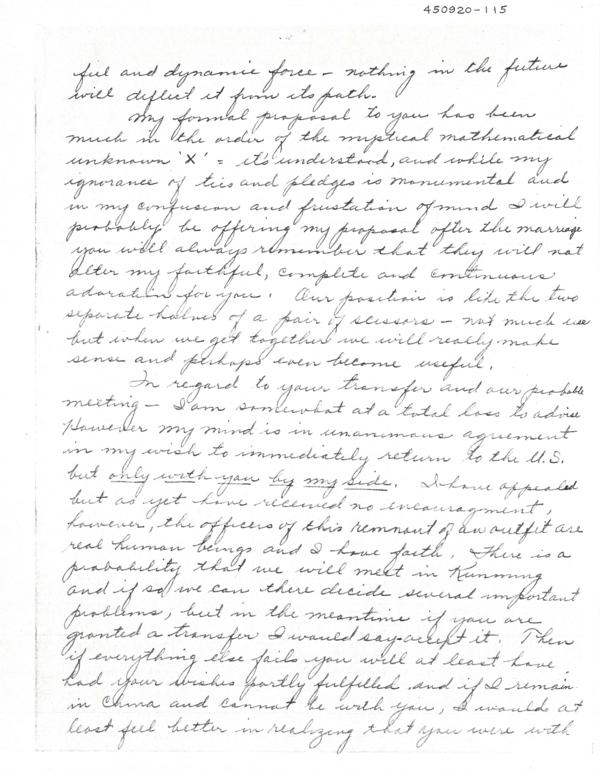 450920-115
ful and dynamic force - nothing in the future
will deflect it from its path.
My formal proposal to you has been
much in the order of the mystical mathematical
unknown 'X' = it's understood, and while my
ignorance of ties and pledges is monumental and
in my confusion and frustation of mind I will
probably be offering my proposal after the marriage
you will always remember that they will not
alter my faithful, complete and continuous
adoration for you. Our position is like the two
separate halves of a pair of scissors - not much use
but when we get together we will really make
sense and perhaps even become useful.
In regard to your transfer and our probable
meeting - I am somewhat at a total loss to advise
However my mind is in unanimous agreement
in my wish to immediately return to the U.S.
but only with you by my side. I have appealed
but as yet have received no encouragment,
however, the officers of this remnant of an outfit are
real human beings and I have faith. There is a
probability that we will meet in Kunming
and if so we can there decide several important
problems, but in the meantime if you are
granted a transfer I would say - accept it. Then
if everything else fails you will at least have
had your wishes partly fulfilled, and if I remain
in China and cannot be with you, I would at
least feel better in realizing that you were with